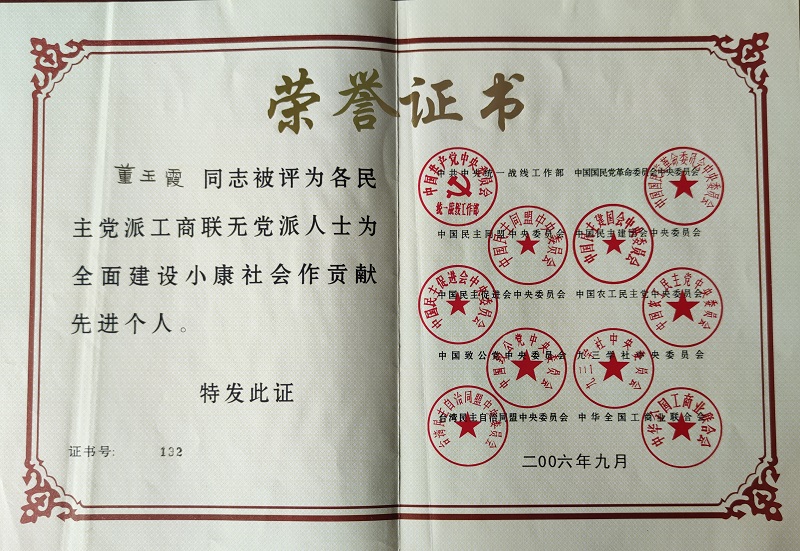 荣誉证书
董玉霞 同志被评为各民
主党派工商联无党派人士为
全面建设小康社会作贡献
先进个人。
特发此证
证书号: 132
中共中央统一战线工作部 中国国民党革命委员会中央委员会
中国民主同盟中央委员会 中国民主建国会中央委员会
中国民主促进会中央委员会 中国农工民主党中央委员会
中国致公党中央委员会 九三学社中央委员会
台湾民主自治同盟中央委员会 中华全国工商业联合会
中国共产党中央委员会
统一战线工作部
中国国民党革命委员会中央委员会
中国民主同盟中央委员会
中国民主建国会中央委员会
中国民主促进会中央委员会
中国农工民主党中央委员会
中国致公党中央委员会
九三学社中央委员会
台湾民主自治同盟中央委员会
中华全国工商业联合会
二00六年九月